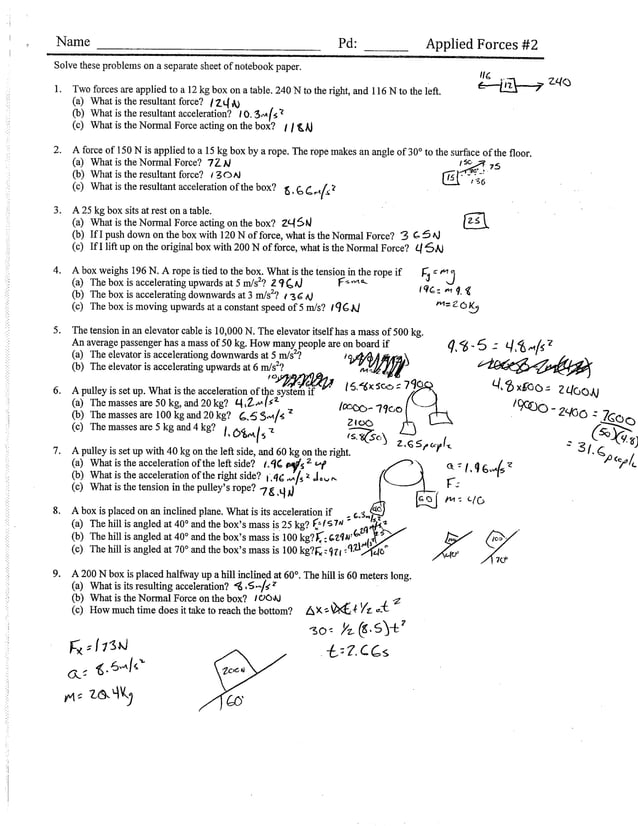 Name ____________________ Pd: ______ Applied Forces #2
Solve these problems on a separate sheet of notebook paper.
116 12 240
1. Two forces are applied to a 12 kg box on a table. 240 N to the right, and 116 N to the left.
(a) What is the resultant force? 124N
(b) What is the resultant acceleration? 10.3m/s²
(c) What is the Normal Force acting on the box? 118N
2. A force of 150 N is applied to a 15 kg box by a rope. The rope makes an angle of 30° to the surface of the floor.
(a) What is the Normal Force? 72N
150 75
(b) What is the resultant force? 130N
15 130
(c) What is the resultant acceleration of the box? 8.66m/s²
3. A 25 kg box sits at rest on a table.
(a) What is the Normal Force acting on the box? 245N
25
(b) If I push down on the box with 120 N of force, what is the Normal Force? 365N
(c) If I lift up on the original box with 200 N of force, what is the Normal Force? 45N
4. A box weighs 196 N. A rope is tied to the box. What is the tension in the rope if
Fg=mg
(a) The box is accelerating upwards at 5 m/s²? 296N F=ma
196=m9.8
(b) The box is accelerating downwards at 3 m/s²? 136N
m=20kg
(c) The box is moving upwards at a constant speed of 5 m/s? 196N
5. The tension in an elevator cable is 10,000 N. The elevator itself has a mass of 500 kg.
An average passenger has a mass of 50 kg. How many people are on board if
9.8-5=4.8m/s²
(a) The elevator is accelerationg downwards at 5 m/s²?
(b) The elevator is accelerating upwards at 6 m/s²?
4.8x500=2400N
15.8x500=7900
10000-2400=7600
(50)(4.8)
=31.6people
10000-7900
2100
15.8(50) 2.65people
6. A pulley is set up. What is the acceleration of the system if
(a) The masses are 50 kg, and 20 kg? 4.2m/s²
(b) The masses are 100 kg and 20 kg? 6.53m/s²
(c) The masses are 5 kg and 4 kg? 1.08m/s²
7. A pulley is set up with 40 kg on the left side, and 60 kg on the right.
(a) What is the acceleration of the left side? 1.96 m/s² up
a=1.96m/s²
(b) What is the acceleration of the right side? 1.96 m/s² down
F=
(c) What is the tension in the pulley's rope? 78.4N
40 60 m=40
8. A box is placed on an inclined plane. What is its acceleration if
(a) The hill is angled at 40° and the box's mass is 25 kg? Fx=157N =6.3m/s²
(b) The hill is angled at 40° and the box's mass is 100 kg? Fx=629N=6.29m/s²
(c) The hill is angled at 70° and the box's mass is 100 kg? Fx=921=9.21m/s²
40° 40° 100 70°
9. A 200 N box is placed halfway up a hill inclined at 60°. The hill is 60 meters long.
(a) What is its resulting acceleration? 8.5m/s²
(b) What is the Normal Force on the box? 100N
(c) How much time does it take to reach the bottom? Δx=V₀t+1/2at²
30=1/2(8.5)t²
t=2.66s
Fx=173N
a=8.5m/s²
m=20.4kg
200N
60°